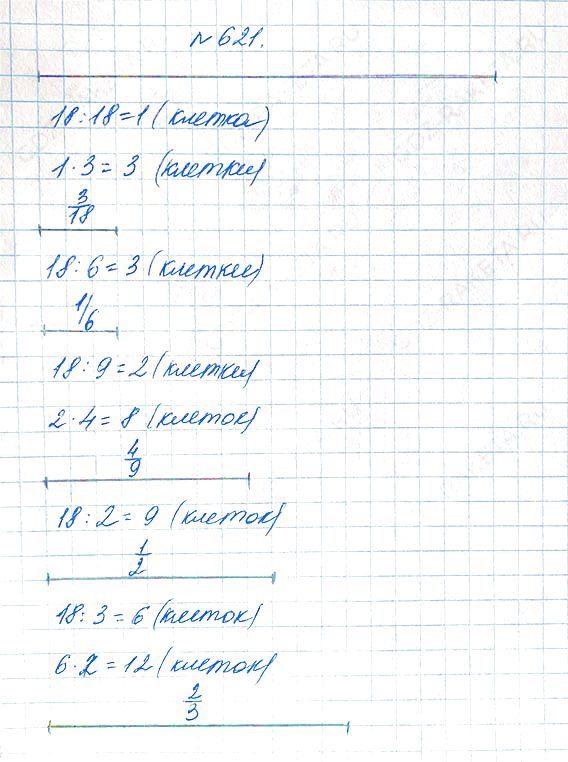 № 621.
18 : 18 = 1 (клетка)
1 · 3 = 3 (клетки)
3/18
18 : 6 = 3 (клетки)
1/6
18 : 9 = 2 (клетки)
2 · 4 = 8 (клеток)
4/9
18 : 2 = 9 (клеток)
1/2
18 : 3 = 6 (клеток)
6 · 2 = 12 (клеток)
2/3